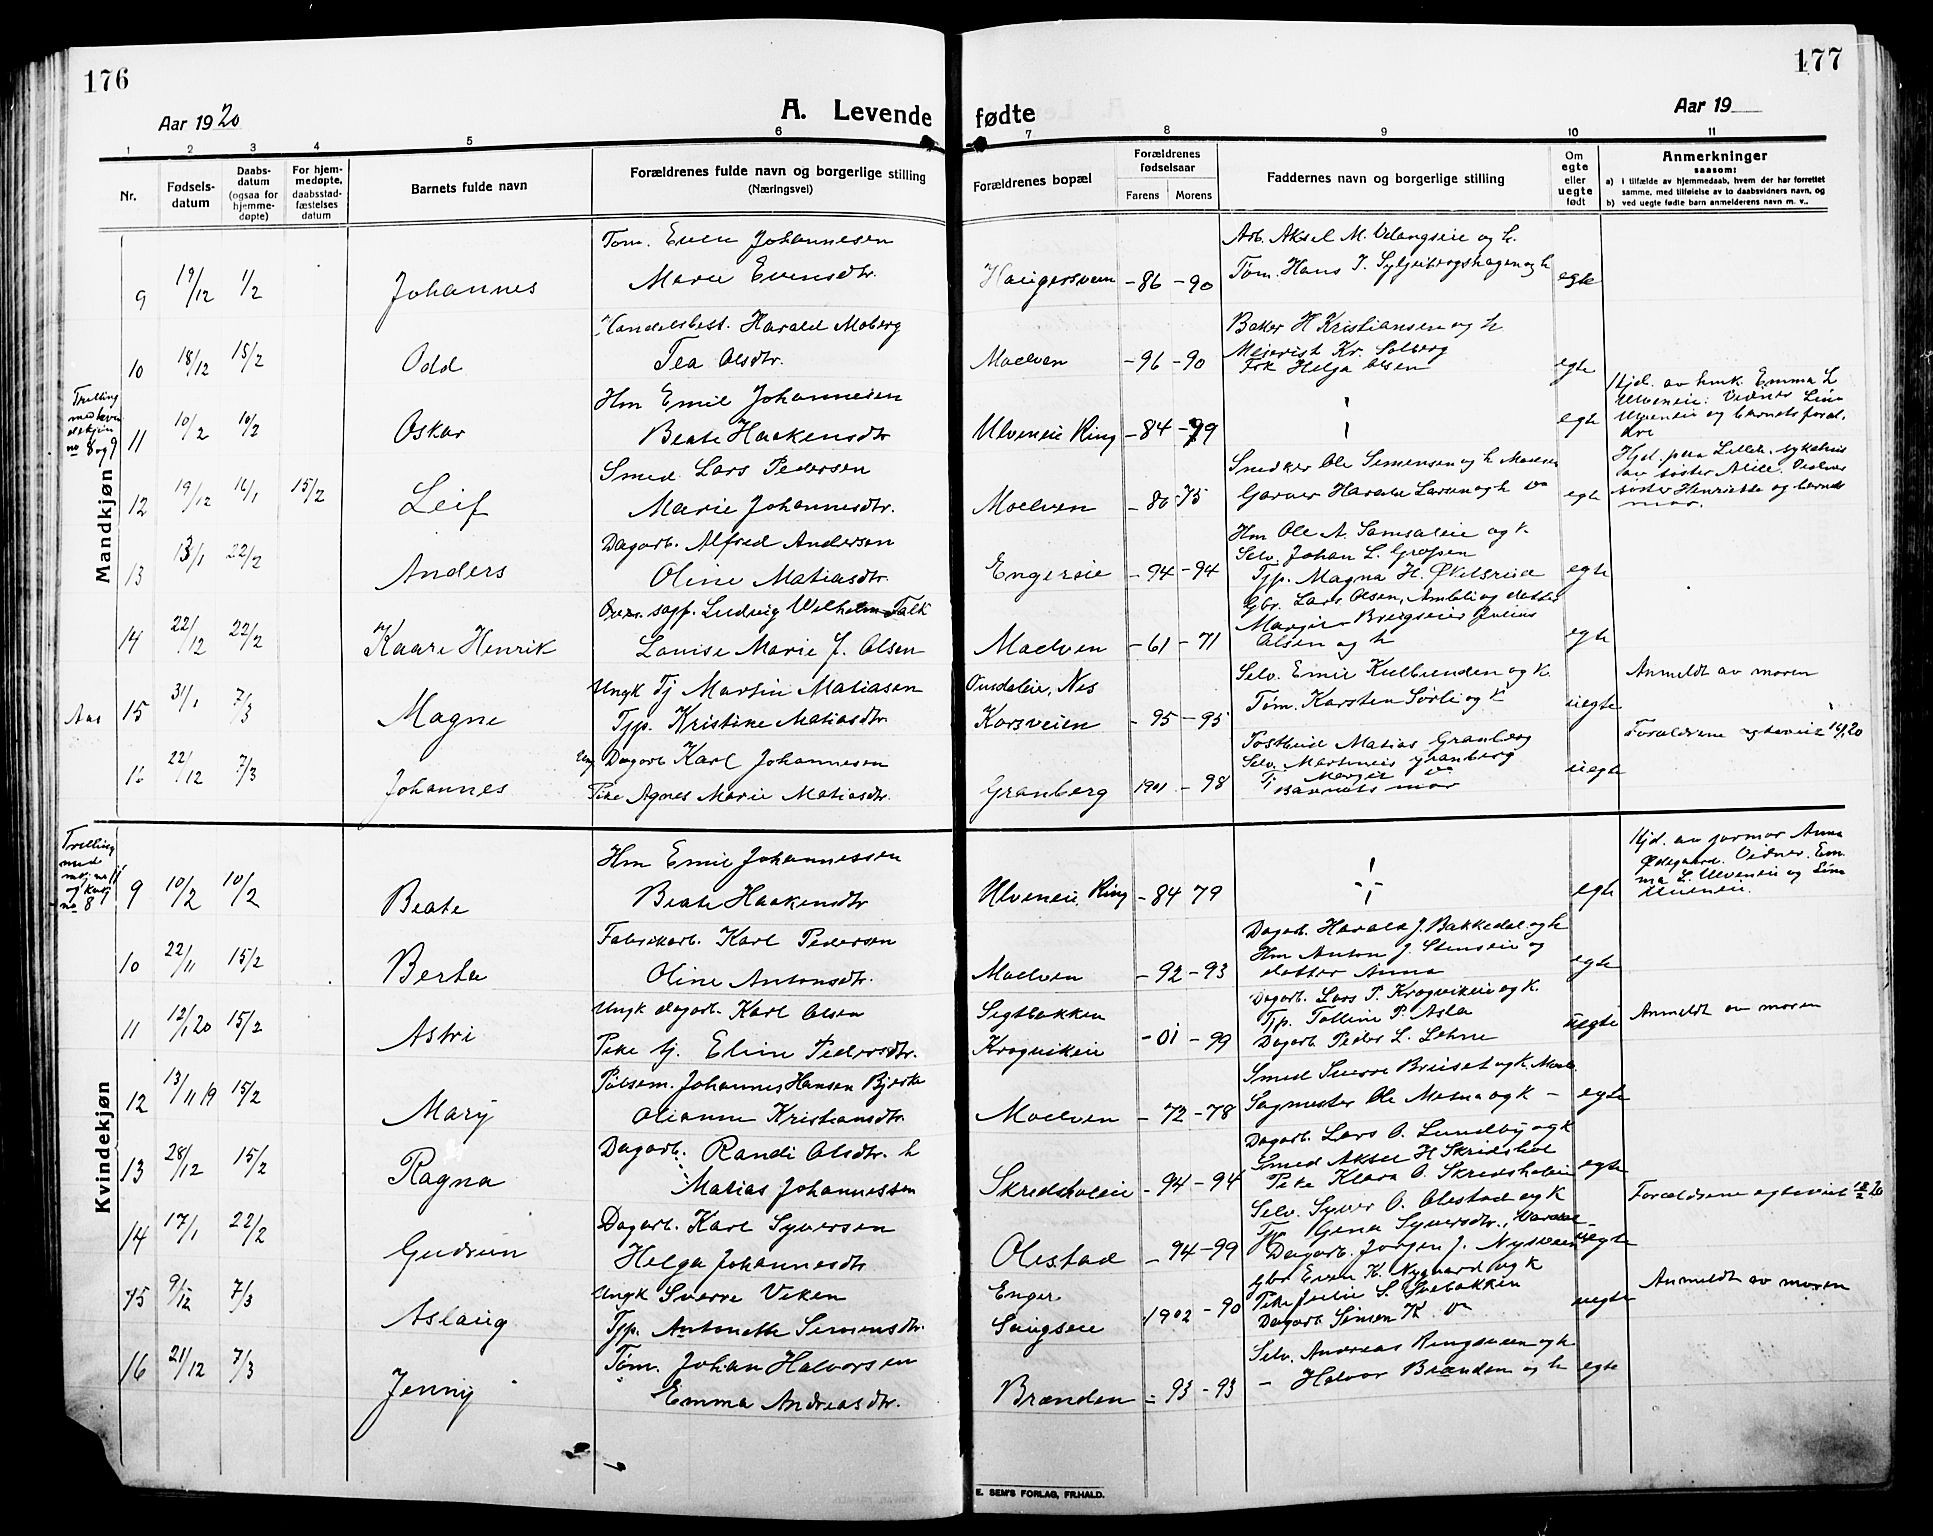 176
177
Aar 1920
A. Levende fødte
Aar 19
1 2 3 4 5 6 7 8 9 10 11
Nr.
Fødsels-
datum
Daabs-
datum
(ogsaa for
hjemme-
døpte)
For hjem-
medøpte,
daabsstad-
fæstelses
datum
Barnets fulde navn
Forældrenes fulde navn og borgerlige stilling
(Næringsvei)
Forældrenes bopæl
Forældrenes
fødselsaar
Farens Morens
Faddernes navn og borgerlige stilling
Om
egte
eller
uegte
født
Anmerkninger
saasom:
a) i tilfælde av hjemmedaab, hvem der har forrettet
samme, med tilføielse av to daabsvidners navn, og
b) ved uegte fødte barn anmelderens navn m. v..
Mandkjøn
Tøm. Even Johannesen
Arb. Aksel M. Velangseie og h.
9 19/12 1/2 Johannes Marie Evensdtr. Haugersveen -86 -90 Tøm. Hans J. Syljubergshagen og h egte
Handelsbest. Harald Moberg
Baker H Kristiansen og h
10 18/12 15/2 Odd Tea Olsdtr. Moelven -96 -90 Meierist Kr. Solberg egte
Frk Helga Olsen
Trilling
med kvin
dekjøn
no 8 og 9
Hm Emil Johannesen
Hjd. av enk. Emma L
Ulveneie. Vidner Lina
11 10/2 10/2 Oskar Beate Haakensdtr Ulveneie Ring -84 -79 egte Ulveneie og barnets foræl-
dre
Smed Lars Pedersen
Snedker Ole Simensen og h Moelven
Hjd. paa Lilleh. sykehus
av søster Alice. Vidner
12 19/12 16/1 15/2 Leif Marie Johannesdtr. Moelven -80 -75 Garver Harald Larsen og h do egte søster Henriette og barnets
mor.
Dagarb. Alfred Andersen
Hm Ole A. Samsaleie og k
Selv. Johan L. Grøpen
13 13/1 22/2 Anders Oline Matiasdtr. Engerseie -94 -94 Tjp. Magna H. Økelsrud egte
Ludvig Wilhelm Falk
Gbr. Lars Olsen, Ambli og datter
14 22/12 22/2 Kaare Henrik Louise Marie J. Olsen Moelven -61 -71 Olsen og h egte
Ungk Tj Martin Matiasen
Nes
Selv. Emil Kulbunden og k.
Anmeldt av moren
Aas
15 31/1 7/3 Magne Tjp. Kristine Matiasdtr. Korsveien -95 -95 Tøm. Karsten Sørli og k uegte
Ung Dagarb Karl Johannesen
Postbud Matias Granberg
Forældrene egteviet
16 22/12 7/3 Johannes Pike Agnes Marie Matiasdtr. Granberg 1901 -98 uegte
Selv. Martineus Granberg
Tj Margit do
Barnets mor
Kvindekjøn
Trilling
med
mkj nr 11
og kvkj
no 8
Hm Emil Johannessen
Hjd. av jormor Anna
Ødegaard. Vidner. Em-
9 10/2 10/2 Beate Beate Haakensdtr Ulveneie, Ring -84 79 egte ma L. Ulveneie og Lina
Ulveneie.
Fabrikarb. Karl Pedersen
Dagarb. Harald J. Bakkedal og h
Hm Anton J. Stenseie og
10 22/11 15/2 Berta Oline Antonsdtr. Moelven -92 -93 datter Anna egte
Ungk dagarb. Karl Olsen
Segtbakken
Dagarb. Lars P. Krogvikeie og k.
Anmeldt av moren
11 12/1 20 15/2 Astri Pike tj. Eline Pedersdtr. Krogvikeie -01 -99 Dagarb Peder L. Lehne uegte
Pølsem. Johannes Hansen Bjerke
Smed Sverre Bruset og k. Moelv.
12 13/11 19 15/2 Mary Olianne Kristiansdtr. Moelven -72 -78 Sagmester Ole Mosua og k - egte
Dagarb. Randi Olsdtr. h
Dagarb. Lars O. Lundby og k
Smed Aksel H Skridshol
13 28/12 15/2 Ragna Matias Johannessen Skredsholeie -94 -94 Pike Klara O. Skredsholeie egte
Dagarb. Karl Syversen
Selv. Syver O. Olestad og k
Forældrene egteviet 18/2 20
14 17/1 22/2 Gudrun Helga Johannesdtr Olestad -94 -99 Dagarb. Jørgen J. Nysveen uegte
Ungk Sverre Veken
Enger
Gbr Even K. Nygaard og k
Anmeldt av moren
15 9/12 7/3 Aslaug Tjp. Antonette Simensdtr. Saugseie 1902 -90 Dagarb. Simen K do uegte
Tøm. Johan Halvorsen
Selv. Andreas Ringsveen og h
16 21/12 7/3 Jenny Emma Andreasdtr. Brænden -93 -93 - Halvor Brænden og h egte
E. SEM'S FORLAG, FR.HALD.